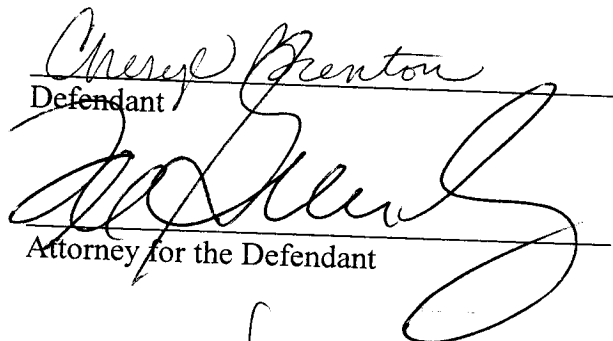 Cheryl Brenton
Defendant
Attorney for the Defendant